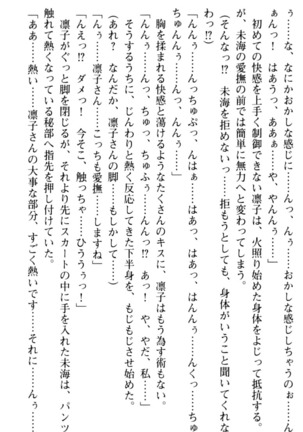 な、なにかおかしな感じに……んっ、んぅ……おかしな感じしちゃうのぉ……ん
ぁんっ! はあうっ、あぁ……や、やんんぅ……」
初めての快感を上手く制御できない凛子は、火照り始めた身体をよじって抵抗する。
が、未海の愛撫の前では簡単に無力へと変わってしまう。
(そんなっ!? 未海を拒めないっ……拒もうとしても、身体がいうこと聞いてくれな
わっ!?)
「んんっ……んっちゅぷっ、んはぁ……はあっ、はあっ、はんんぅ……んくっ……ちゅ
ちゅんんぅ……んっ、んんぅ」
胸を揉まれる快感と蕩けるようなたくさんのキスに、凛子はもう為す術もない。
「んんぅ……んっ、ちゅっ、ちゅふぅ……んんっ!? あっ! や、やだ、私……」
そうするうちに、じんわりと熱く反応してきた下半身を、もじもじさせ始めた。
(あれ? なんだか、凛子さんの脚……もしかして……)
「んぅ……凛子さん……こっちも愛撫……しますね」
「んえっ!? ダメっ! 今そこ、触っちゃ……ひううぅっ!」
凛子がぐっと脚を閉じるが、それより先にスカートの中に手を入れた未海は、パンツ
触れて熱くなっている秘部へ指先を押し付けていた。
「ああ……熱い……凛子さんの大事な部分、すごく熱いです……それに……んぅ……